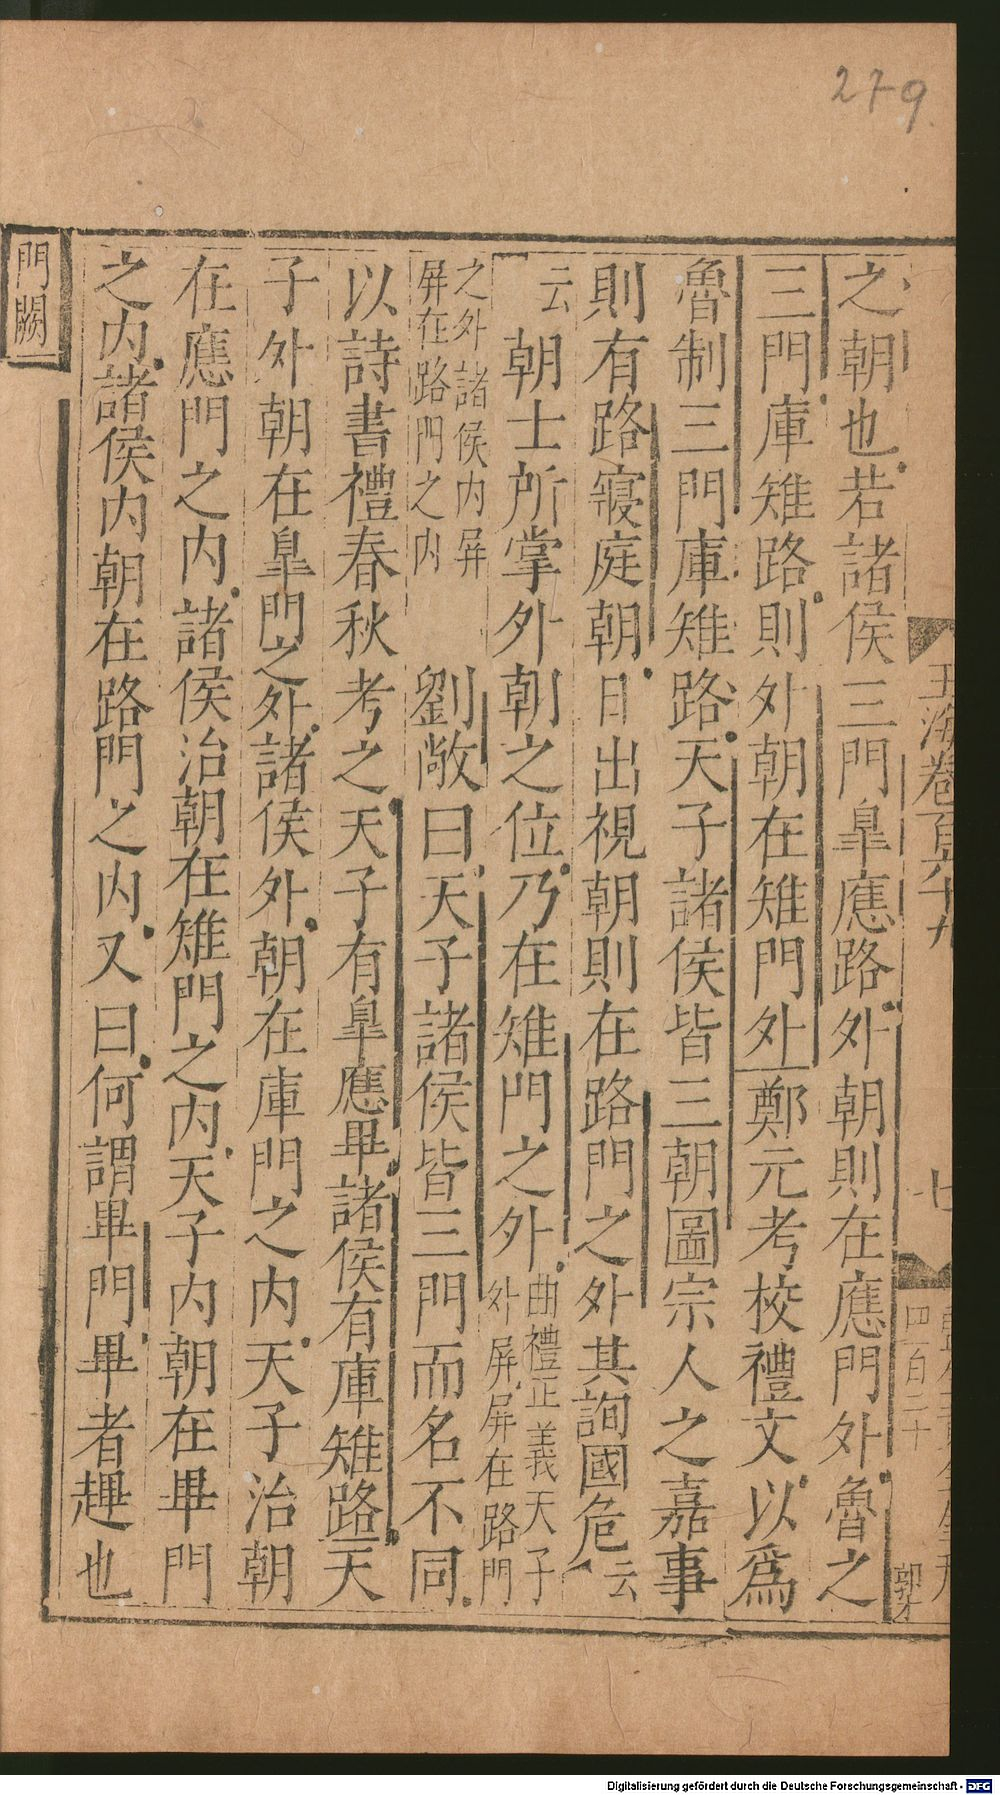 279
之朝也若諸侯三門皐應路外朝則在應門外魯之
三門庫雉路則外朝在雉門外鄭元考校禮文以爲
魯制三門庫雉路天子諸侯皆三朝圖宗人之嘉事
則有路寢庭朝日出視朝則在路門之外其詢國危云
云朝士所掌外朝之位乃在雉門之外曲禮正義天子
外屏屏在路門
之外諸侯内屏
屏在路門之内
劉敞曰天子諸侯皆三門而名不同
以詩書禮春秋考之天子有皐應畢諸侯有庫雉路天
子外朝在皐門之外諸侯外朝在庫門之内天子治朝
在應門之内諸侯治朝在雉門之内天子内朝在畢門
之内諸侯内朝在路門之内又曰何謂畢門畢者趩也
門闕
玉海卷百六十九
七
四百二十
Digitalisierung gefördert durch die Deutsche Forschungsgemeinschaft - DFG